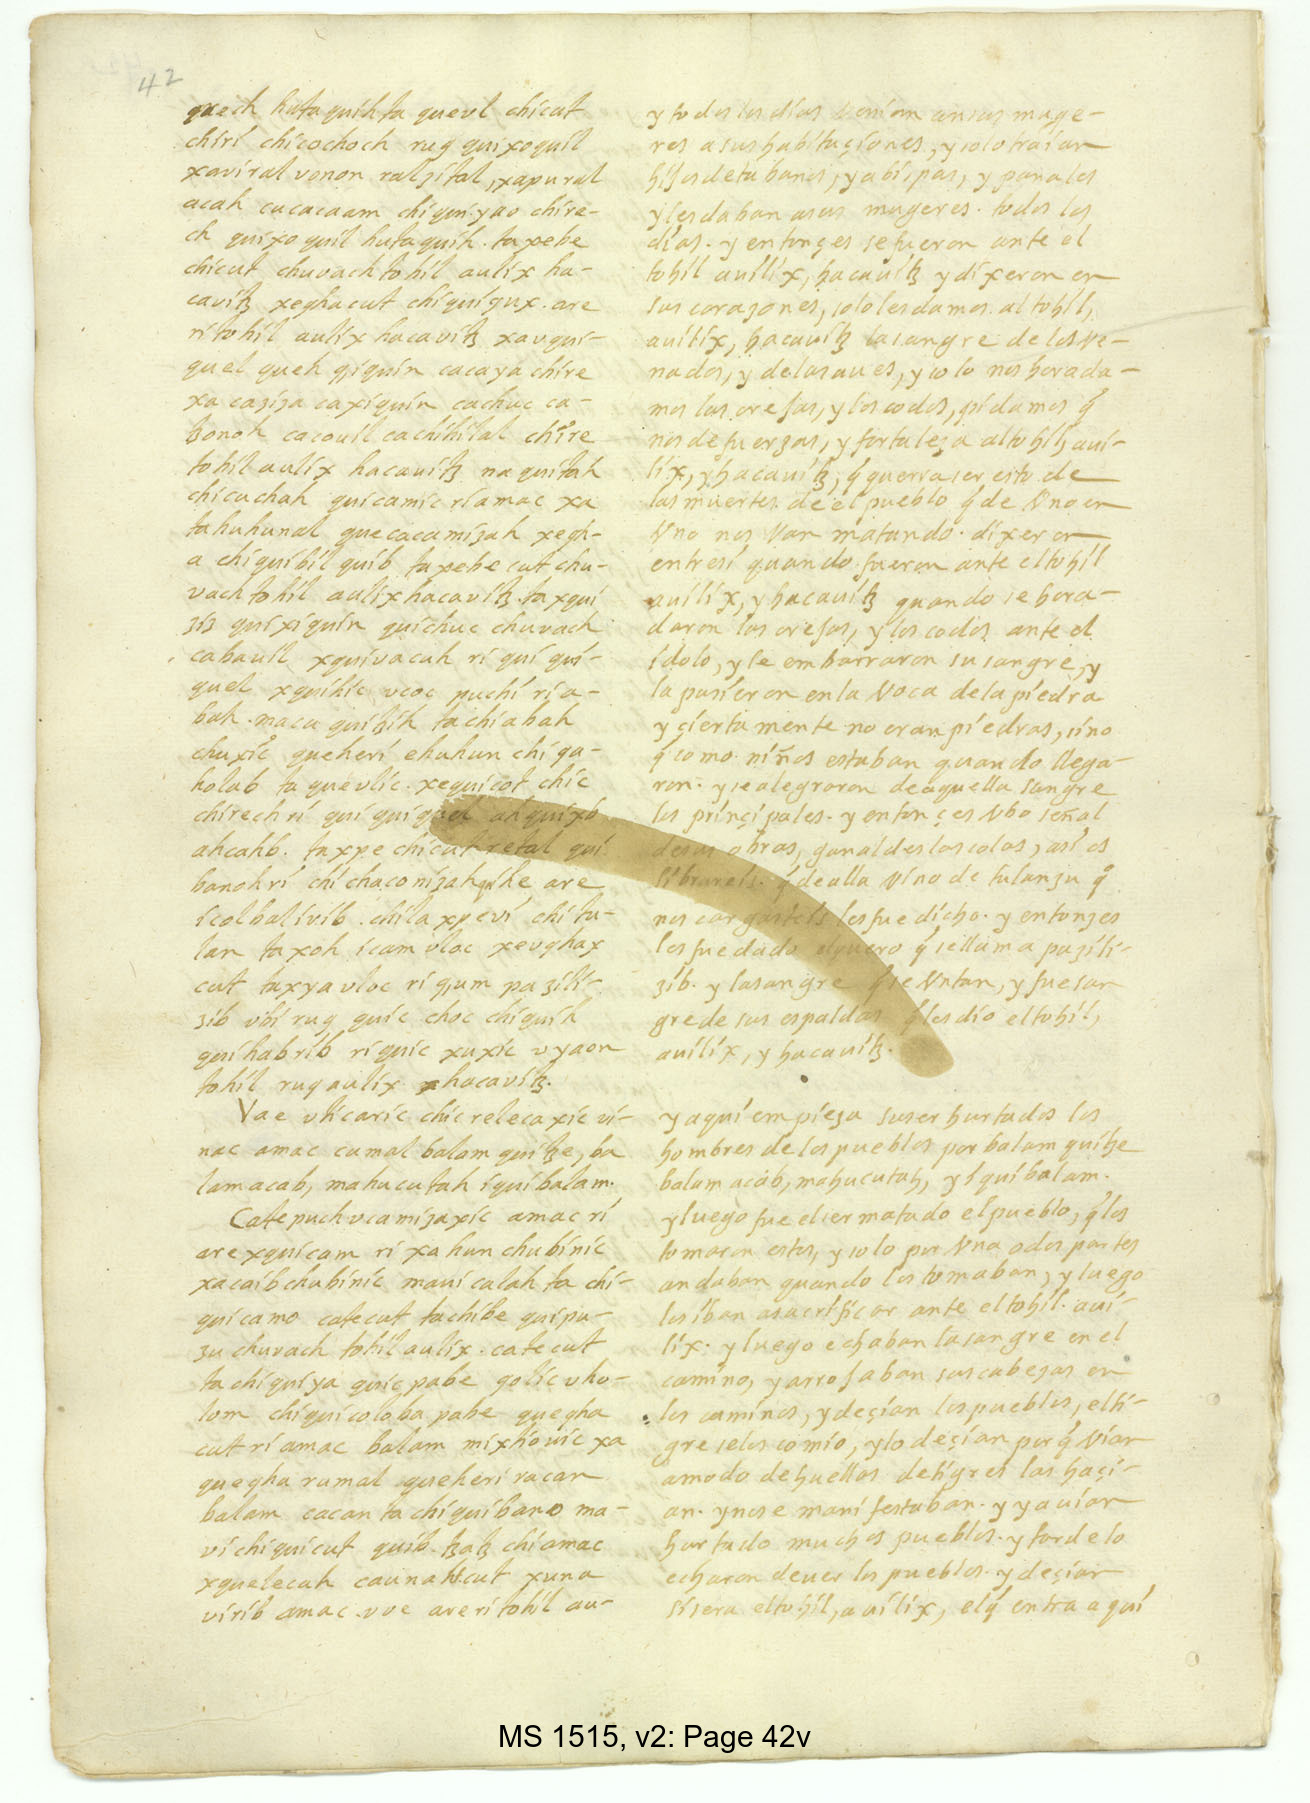 42
quech hutaquih ta queul chicut
chiri chicochoch ruq quixoquil
xaviral vonon ralzital, xapu ral
acah cacacaam chiqui yao chire-
ch quixoquil hutaquih. ta xebe
chicut chuvach tohil aulix ha-
cavitz xeghacut chiquiqux. are
ri tohil aulix hacavitz xavqui-
quel queh qiquin cacaya chire
xa caziza caxiquin cachuc ca-
tzonoh cacouil cachihilal chire
tohil aulix hacauitz na quitah
chicachah quicamic ri amac xa
ta huhunal quecacamizah xegh-
a chiquibil quib ta xebe cut chu-
vach tohil aulix hacavitz. ta xqui
ziz quixiquin quichuc chuvach
cabauil xquivacuh ri qui qui-
quel xquihic vcoc puchi ri a-
bah. maca quitzih ta chi abah
chuxic queheri ehuhun chi qa-
holab ta queulic. xequicot chic
chirech ri qui quiquel ah quixb
ahcahb. ta xpe chicut retal qui
banoh ri chichaconizah qihe are
icolbal ivib. chila xpevi chi tu-
lan ta xoh icam vloc xevghax
cut ta xya vloc ri qium pa zili-
zib vbi ruq quic choc chiquih
quihabrib ri quic xuxic vyaon
tohil ruq aulix hacavitz.
Vae vticaric chic relecaxic vi-
nac amac cumal balam quitze, ba
lam acab, mahucutah iqui balam.
Catepuch vcamizaxic amac ri
are xquicam ri xa hun chubinic
xa caib chubinic maui calah ta chi-
quicamo catecut ta chibe quipu-
zu chuvach tohil aulix. catecut
ta chiquiya quic pa be qolic vho-
lom chiquicoloba pa be quegha
cut ri amac balam mixtiouic xa
quegha rumal queheri racan
balam cacan ta chiquibano ma-
vi chiquicut quib. tzatz chi amac
xquelecah caunahicut xuna
virib amac. vve are ri tohil au-
y todos los dias venian ansus muge-
res a sus habitaçiones, y solo traian
hijos de tabanos, y abispas, y panales
y les daban asus mugeres. todos los
dias. y entonçes se fueron ante el
tohil auilix, hacauitz y dixeron en
sus corazones, solo les damos. al tohil,
auilix, hacauitz la sangre de los ve-
nados, y de las aues, y solo nos horada-
mos las orejas, y los codos, pidamos q̃
nos de fuerzas, y fortaleza al tohil, aui-
lix, y hacauitz, q̃ querra ser esto de
las muertes de el pueblo q̃ de Vno en
Vno nos van matando. dixeron
entresi quando fueron ante el tohil
auilix, y hacauitz quando se hora-
daron las orejas, y los codos ante el
idolo, y le embarraron su sangre, y
la pusieron en la Voca de la piedra
y çiertamente no eran piedras, sino
q̃ como niños estaban quando llega-
ron. y se alegraron de aquella sangre
los prinçipales. y entonçes Vbo señal
de sus obras, ganaldes las colas, asi os
librareis. q̃ de alla vino de tulanzu q̃
nos cargasteis les fue dicho. y entonzes
les fue dado el cuero q̃ se llama pazili-
zib. y la sangre q̃ se Vntan, y fue san
gre de sus espaldas q̃ les dio el tohil,
auilix, y hacauitz.
y aqui empieza su ser hurtados los
hombres de los pueblos por balam quitze
balam acab, mahucutah, y iquibalam.
y luego fue el ser matado el pueblo, q̃ los
tomaron estos, y solo por Vna o dos partes
andaban quando los tomaban, y luego
los iban a sacrificar ante el tohil. aui-
lix. y luego echaban la sangre en el
camino, y arrojaban sus cabezas en
los caminos, y deçian los pueblos, el ti-
gre se los comio, y lo deçian porq̃ vian
a modo de huellas de tigres las haçi-
an. y no se manifestaban. y ya auian
hurtado muchos pueblos. y tarde lo
echaron de ver los pueblos. y deçian
si sera el tohil, a uilix, el q̃ entra aqui
MS 1515, v2: Page 42v